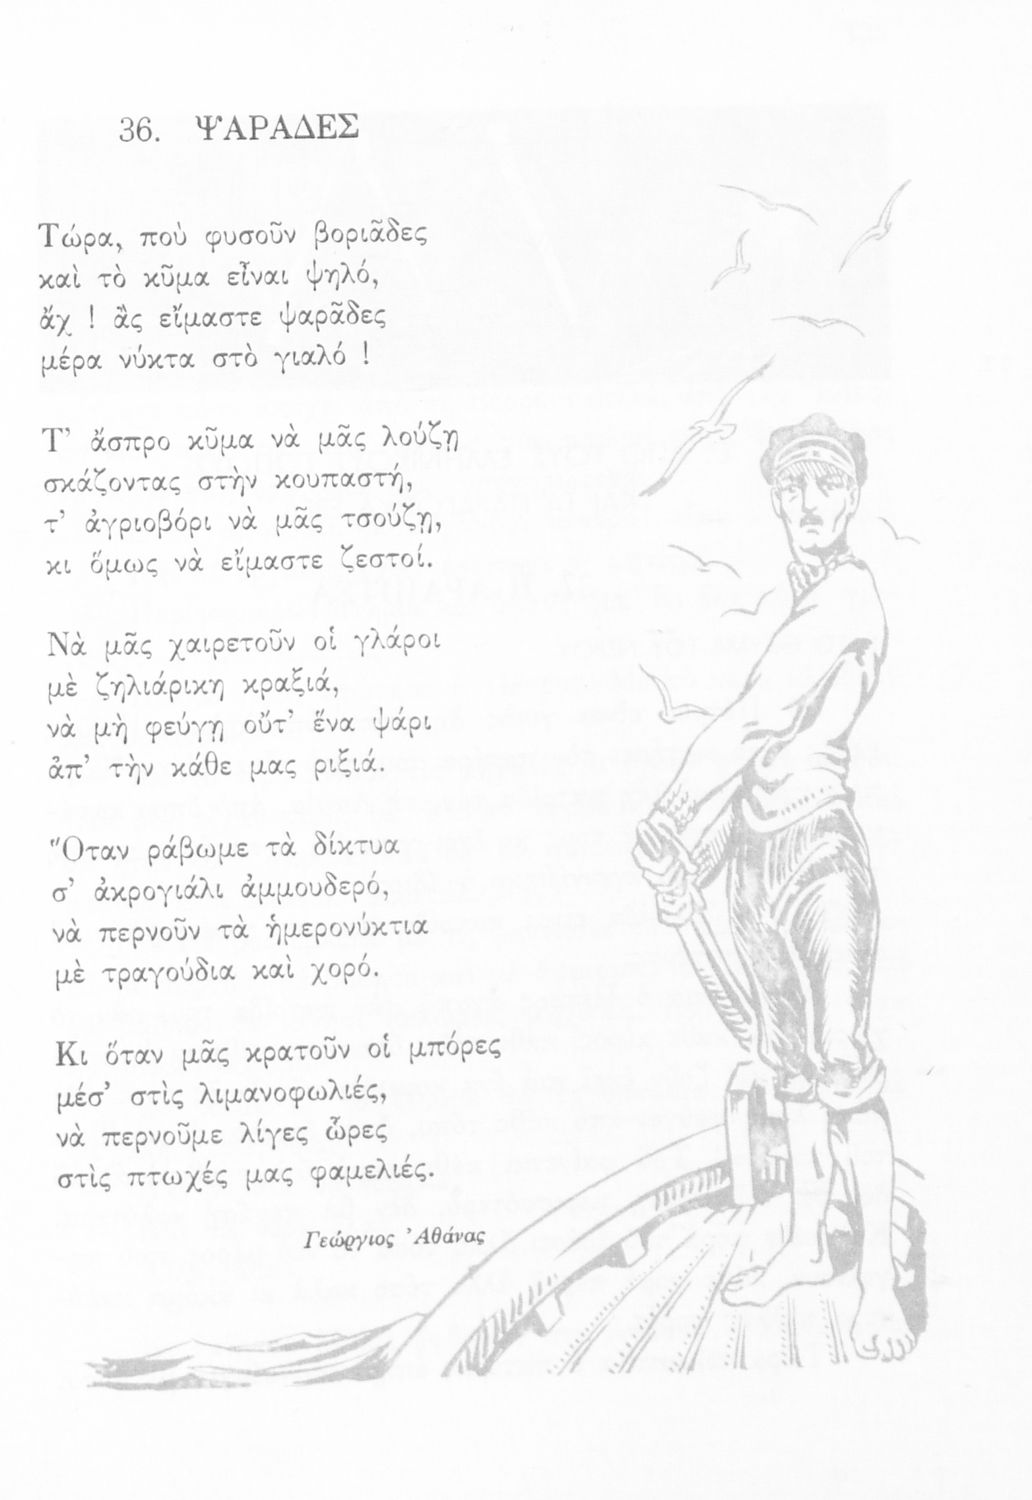 36. ΨΑΡΑΔΕΣ
Τώρα, ποὺ φυσοῦν βοριᾶδες
καὶ τὸ κῦμα εἶναι ψηλό,
ἄχ ! ἂς εἴμαστε ψαρᾶδες
μέρα νύκτα στὸ γιαλό !
Τ’ ἄσπρο κῦμα νὰ μᾶς λούζῃ
σκάζοντας στὴν κουπαστή,
τ’ ἀγριοβόρι νὰ μᾶς τσούζῃ,
κι ὅμως νὰ εἴμαστε ζεστοί.
Νὰ μᾶς χαιρετοῦν οἱ γλάροι
μὲ ζηλιάρικη κραξιά,
νὰ μὴ φεύγῃ οὔτ’ ἕνα ψάρι
ἀπ’ τὴν κάθε μας ριξιά.
Ὅταν ράβωμε τὰ δίκτυα
σ’ ἀκρογιάλι ἀμμουδερό,
νὰ περνοῦν τὰ ἡμερονύκτια
μὲ τραγούδια καὶ χορό.
Κι ὅταν μᾶς κρατοῦν οἱ μπόρες
μέσ’ στὶς λιμανοφωλιές,
νὰ περνοῦμε λίγες ὧρες
στὶς πτωχές μας φαμελιές.
Γεώργιος Ἀθάνας